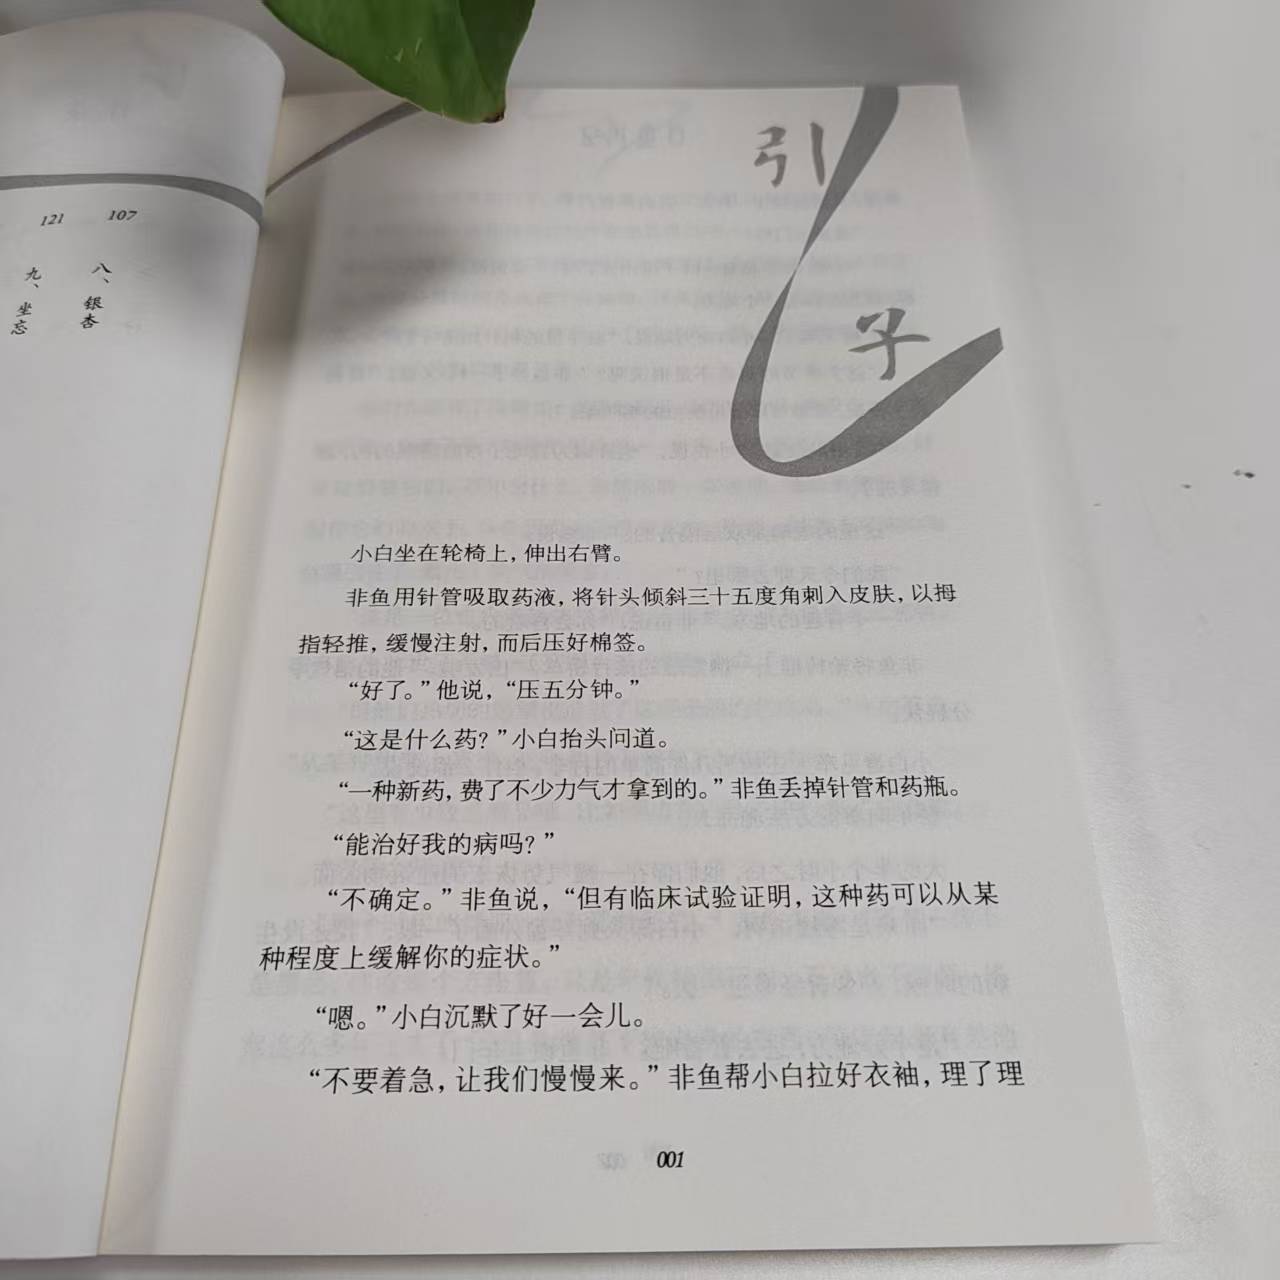 121
107
九、坐忘
八、银杏
引子
小白坐在轮椅上，伸出右臂。
非鱼用针管吸取药液，将针头倾斜三十五度角刺入皮肤，以拇
指轻推，缓慢注射，而后压好棉签。
“好了。”他说，“压五分钟。”
“这是什么药？”小白抬头问道。
“一种新药，费了不少力气才拿到的。”非鱼丢掉针管和药瓶。
“能治好我的病吗？”
“不确定。”非鱼说，“但有临床试验证明，这种药可以从某
种程度上缓解你的症状。”
“嗯。”小白沉默了好一会儿。
“不要着急，让我们慢慢来。”非鱼帮小白拉好衣袖，理了理
001